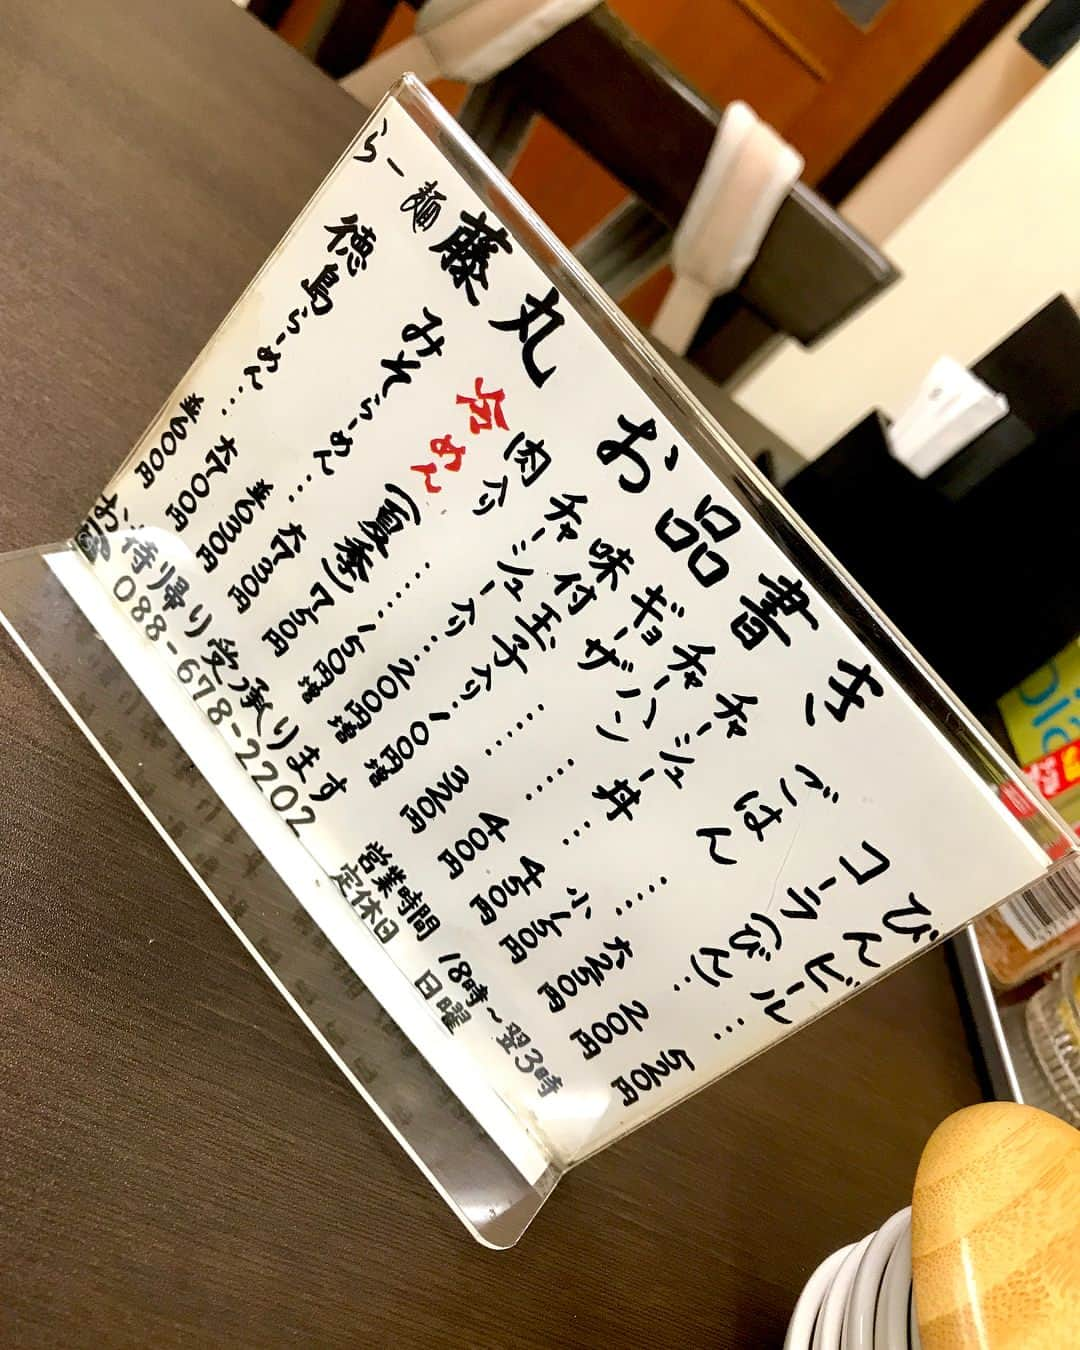 らー麺 藤丸 お品書き
徳島らーめん… 並600円
大700円
みそらーめん… 並630円
大730円
冷めん(夏季)750円
肉入り…… 150円増
チャーシュー入り… 200円増
味付玉子入り… 100円増
ギョーザ…… 320円
チャーハン…… 400円
チャーシュー丼… 450円
ごはん…… 小150円
大250円
コーラ(びん)… 200円
びんビール… 520円
お持ち帰り受け承ります
088-678-2202
営業時間 18時〜翌3時
定休日 日曜